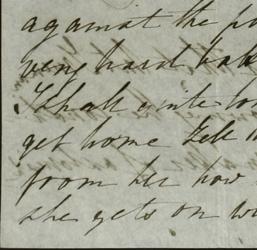 against the
very hard
I shall write to
get home Tell
from her how
she gets on